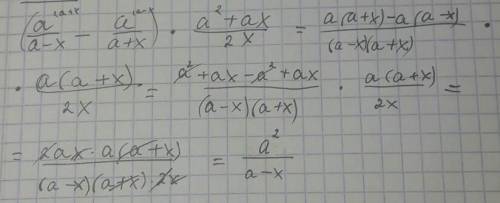 (a^{\a+x}/(a-x) - a^{\a-x}/(a+x)) · (a² + ax)/(2x) = (a(a+x) - a(a-x))/((a-x)(a+x)) ·
· a(a+x)/(2x) = (a² + ax - a² + ax)/((a-x)(a+x)) · a(a+x)/(2x) =
= (2ax · a(a+x))/((a-x)(a+x) · 2x) = a²/(a-x)